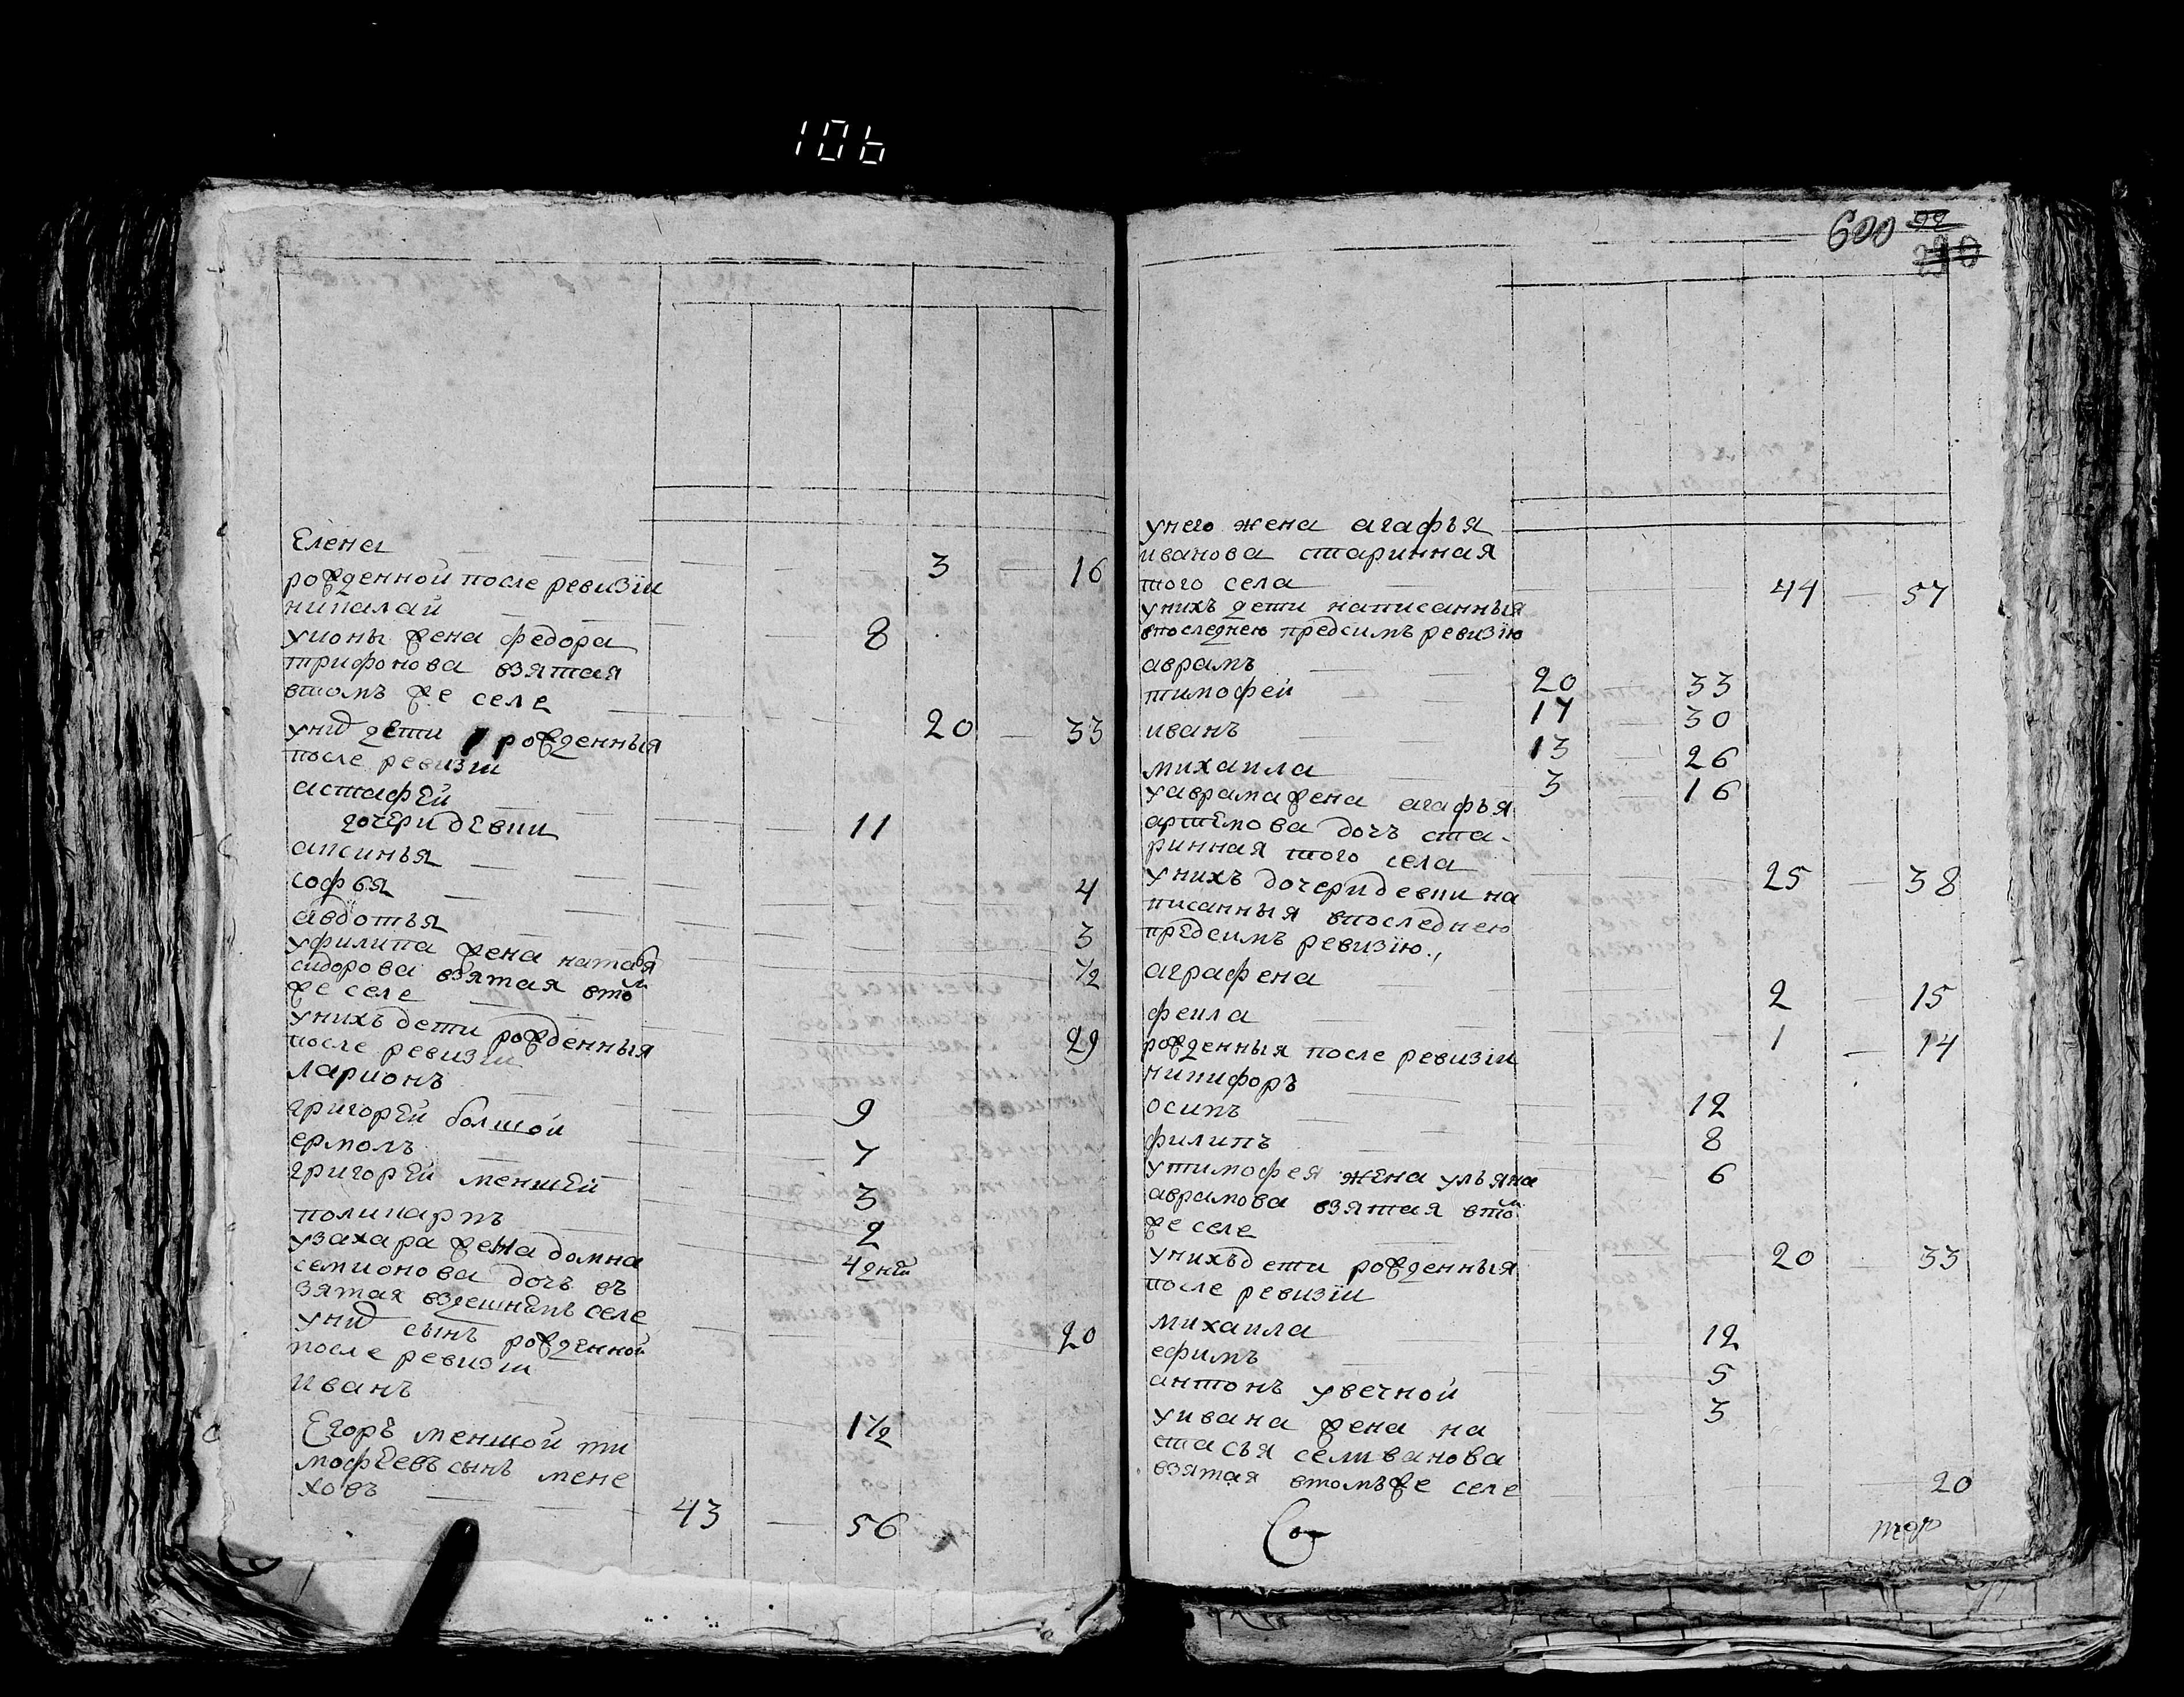 106
Елена 3 16
рожденной после ревизїи
никалай 8
уионы жена федора
трифонова взятая
втомъ же селе 20 33
унид дети рожденныя
после ревизїи
астафей 11
дочери девки
аксинья 4
софья 3
авдотья 1/2
уфилипа жена наталя
сидорова взятая втом
же селе 29
унихъ дети рожденныя
после ревизїи
ларионъ 9
григорей болшой 7
ермолъ 3
григорей меншей 2
поликарпъ 4 днеи
узахара жена домна
семионова дочъ въ
зятая вздешнамъ селе 20
унид сынъ рожденной
после ревизїи
Иванъ 1 1/2
Егоръ меншой ти
мофеевъ сынъ мене
ховъ 43 56
600
унего жена агафья
иванова старинная
того села 44 57
унихъ дети написанныя
впоследнею предсимъ ревизїю
аврамъ 20 33
тимофеи 17 30
иванъ 13 26
михаила 3 16
уаврама жена агафья
артемова дочъ ста-
ринная того села 25 38
унихъ дочери девки на
писанныя впоследнею
предсимъ ревизїю.,
аграфена 2 15
фекла 1 14
рожденныя после ревизїи
никифоръ 12
осипъ 8
филипъ 6
утимофея жена ульяна
аврамова взятая втом
же селе 20 33
унихъ дети рожденныя
после ревизїи
михаила 12
ефимъ 5
антонъ увечной 3
уивана жена на
стасья селиванова
взятая втомъже селе 20
Со
тор